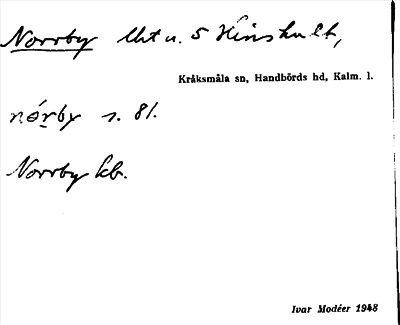 Norrby lht u. 5 Hinshult,
Kråksmåla sn, Handbörds hd, Kalm. l.
nórby s. 81.
Norrby kb.
Ivar Modéer 1948